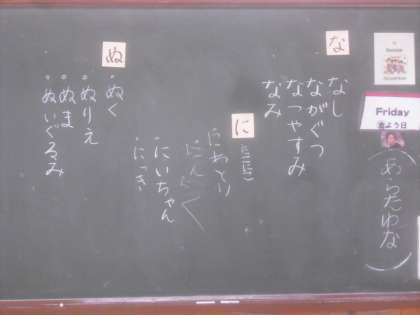 Friday
金よう日
(あらたわな)
な
なし
ながぐつ
なつやすみ
なみ
に
にわとり
にんにく
にいちゃん
にっき
ぬ
ぬく
ぬりえ
ぬま
ぬいぐるみ